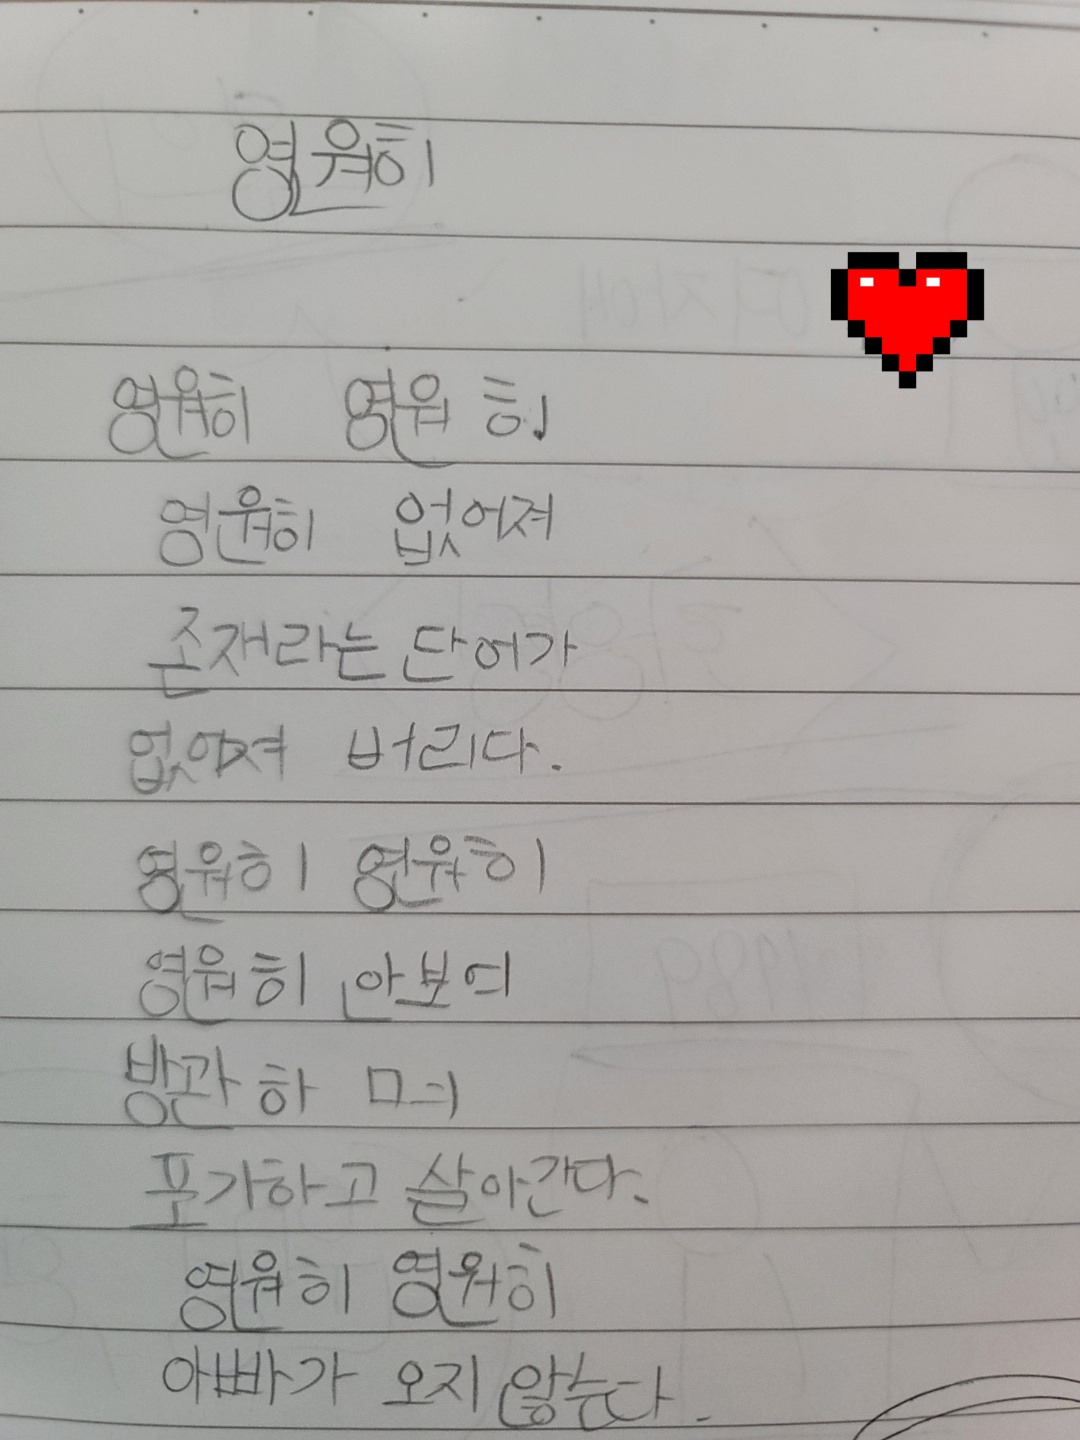 영원히
영원히 영원히
영원히 없어져
존재라는 단어가
없어져 버리다.
영원히 영원히
영원히 안보여
방관하며
포기하고 살아간다.
영원히 영원히
아빠가 오지 않는다.